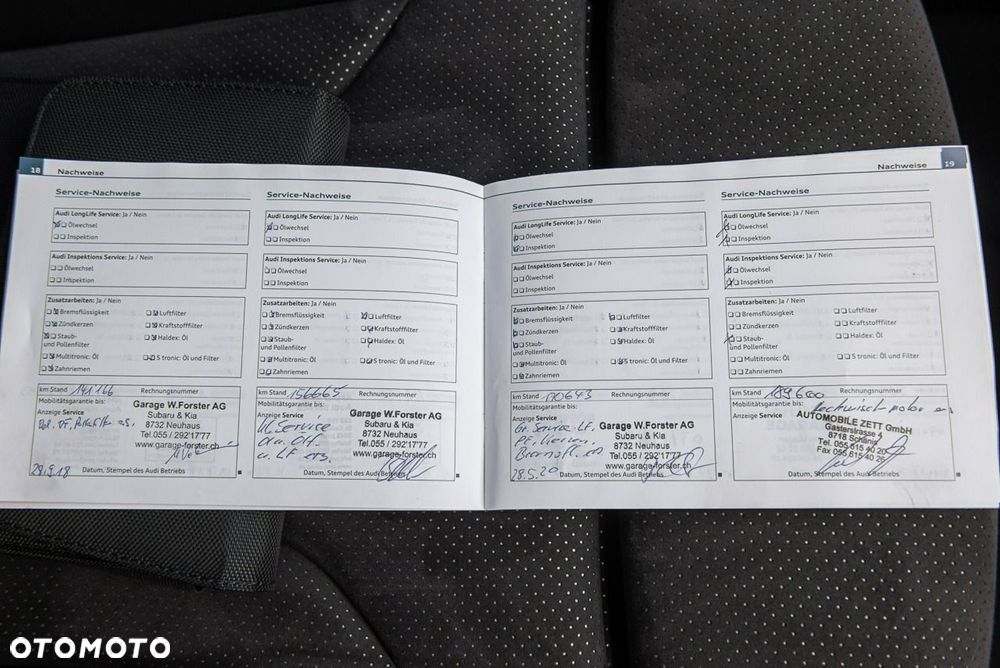 18 Nachweise
Service-Nachweise
Audi LongLife Service: Ja / Nein
Ölwechsel
Inspektion
Audi Inspektions Service: Ja / Nein
Ölwechsel
Inspektion
Zusatzarbeiten: Ja / Nein
Bremsflüssigkeit
Luftfilter
Zündkerzen
Kraftstofffilter
Staub-
und Pollenfilter
Haldex: Öl
Multitronic: Öl
S tronic: Öl und Filter
Zahnriemen
km Stand 141166
Rechnungsnummer
Mobilitätsgarantie bis:
Anzeige Service
Garage W.Forster AG
Subaru & Kia
8732 Neuhaus
Tel.055 / 292'17'77
www.garage-forster.ch
28.9.18
Datum, Stempel des Audi Betriebs
Service-Nachweise
Audi LongLife Service: Ja / Nein
Ölwechsel
Inspektion
Audi Inspektions Service: Ja / Nein
Ölwechsel
Inspektion
Zusatzarbeiten: Ja / Nein
Bremsflüssigkeit
Luftfilter
Zündkerzen
Kraftstofffilter
Staub-
und Pollenfilter
Haldex: Öl
Multitronic: Öl
S tronic: Öl und Filter
Zahnriemen
km Stand 156665
Rechnungsnummer
Mobilitätsgarantie bis:
Anzeige Service
Service
Garage W.Forster AG
Subaru & Kia
8732 Neuhaus
Tel.055 / 292'17'77
www.garage-forster.ch
u. LF ers.
Datum, Stempel des Audi Betriebs
Nachweise 19
Service-Nachweise
Audi LongLife Service: Ja / Nein
Ölwechsel
Inspektion
Audi Inspektions Service: Ja / Nein
Ölwechsel
Inspektion
Zusatzarbeiten: Ja / Nein
Bremsflüssigkeit
Luftfilter
Zündkerzen
Kraftstofffilter
Staub-
und Pollenfilter
Haldex: Öl
Multitronic: Öl
S tronic: Öl und Filter
Zahnriemen
km Stand 170643
Rechnungsnummer
Mobilitätsgarantie bis:
Anzeige Service
Gr. Service LF,
Garage W.Forster AG
Subaru & Kia
8732 Neuhaus
Tel.055 / 292'17'77
www.garage-forster.ch
28.5.20
Datum, Stempel des Audi Betriebs
Service-Nachweise
Audi LongLife Service: Ja / Nein
Ölwechsel
Inspektion
Audi Inspektions Service: Ja / Nein
Ölwechsel
Inspektion
Zusatzarbeiten: Ja / Nein
Bremsflüssigkeit
Luftfilter
Zündkerzen
Kraftstofffilter
Staub-
und Pollenfilter
Haldex: Öl
Multitronic: Öl
S tronic: Öl und Filter
Zahnriemen
km Stand 189600
Rechnungsnummer
Mobilitätsgarantie bis:
Anzeige Service
AUTOMOBILE ZETT GmbH
Gasterstrasse 4
8718 Schänis
Tel. 055 615 40 20
Fax 055 615 40 26
Datum, Stempel des Audi Betriebs
OTOMOTO